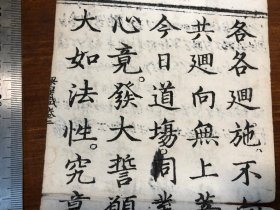 各各廻施。不
共廻向無上菩
今日道塲。同業
心竟。發大誓願
大如法性。究竟